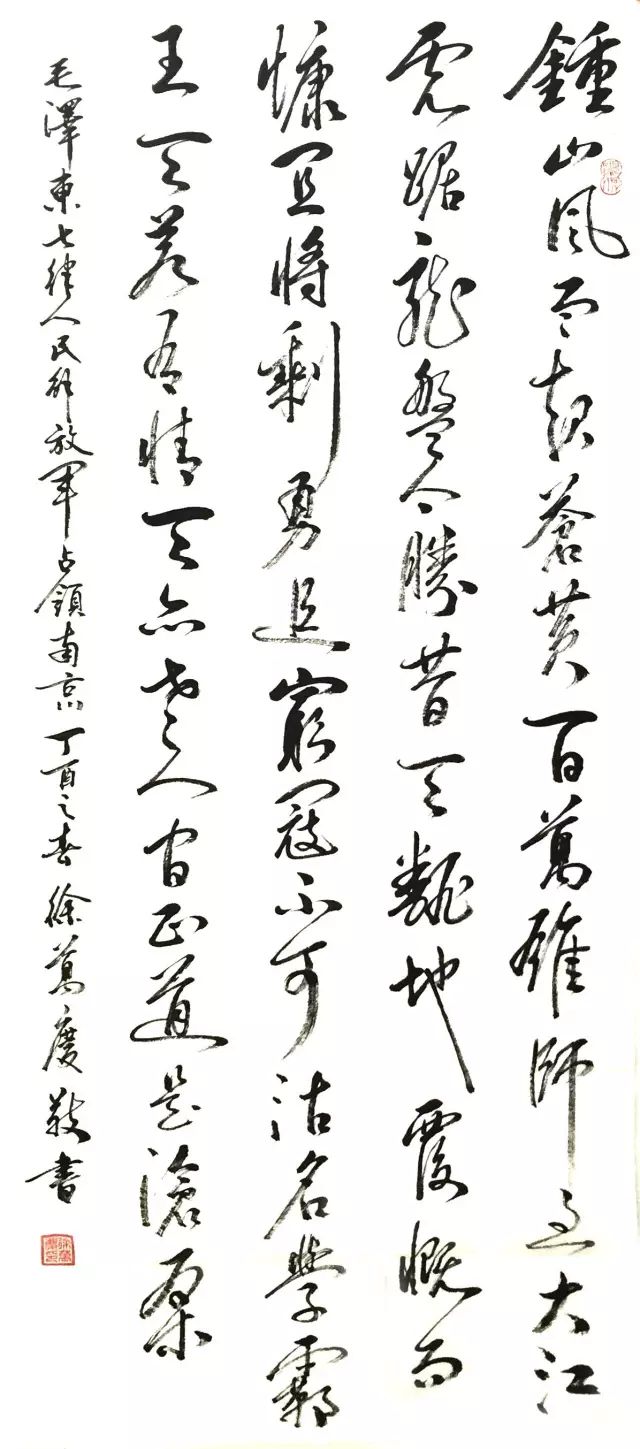 鍾山風雲起蒼黃百萬雄師過大江
虎踞龍盤今勝昔天翻地覆慨而
慷宜將剩勇追窮寇不可沽名學霸
王天若有情天亦老人間正道是滄桑
毛澤東七律人民解放軍占領南京丁酉之春徐萬慶敬書